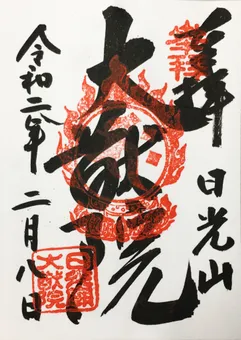 奉拝
日光山
大猷院
令和二年 二月八日
日光山
大猷院